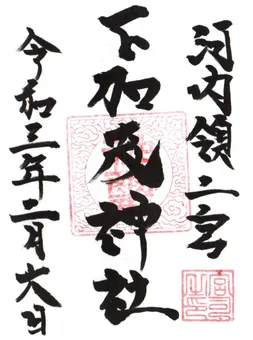 河内領二宮
下加茂神社
令和三年二月六日